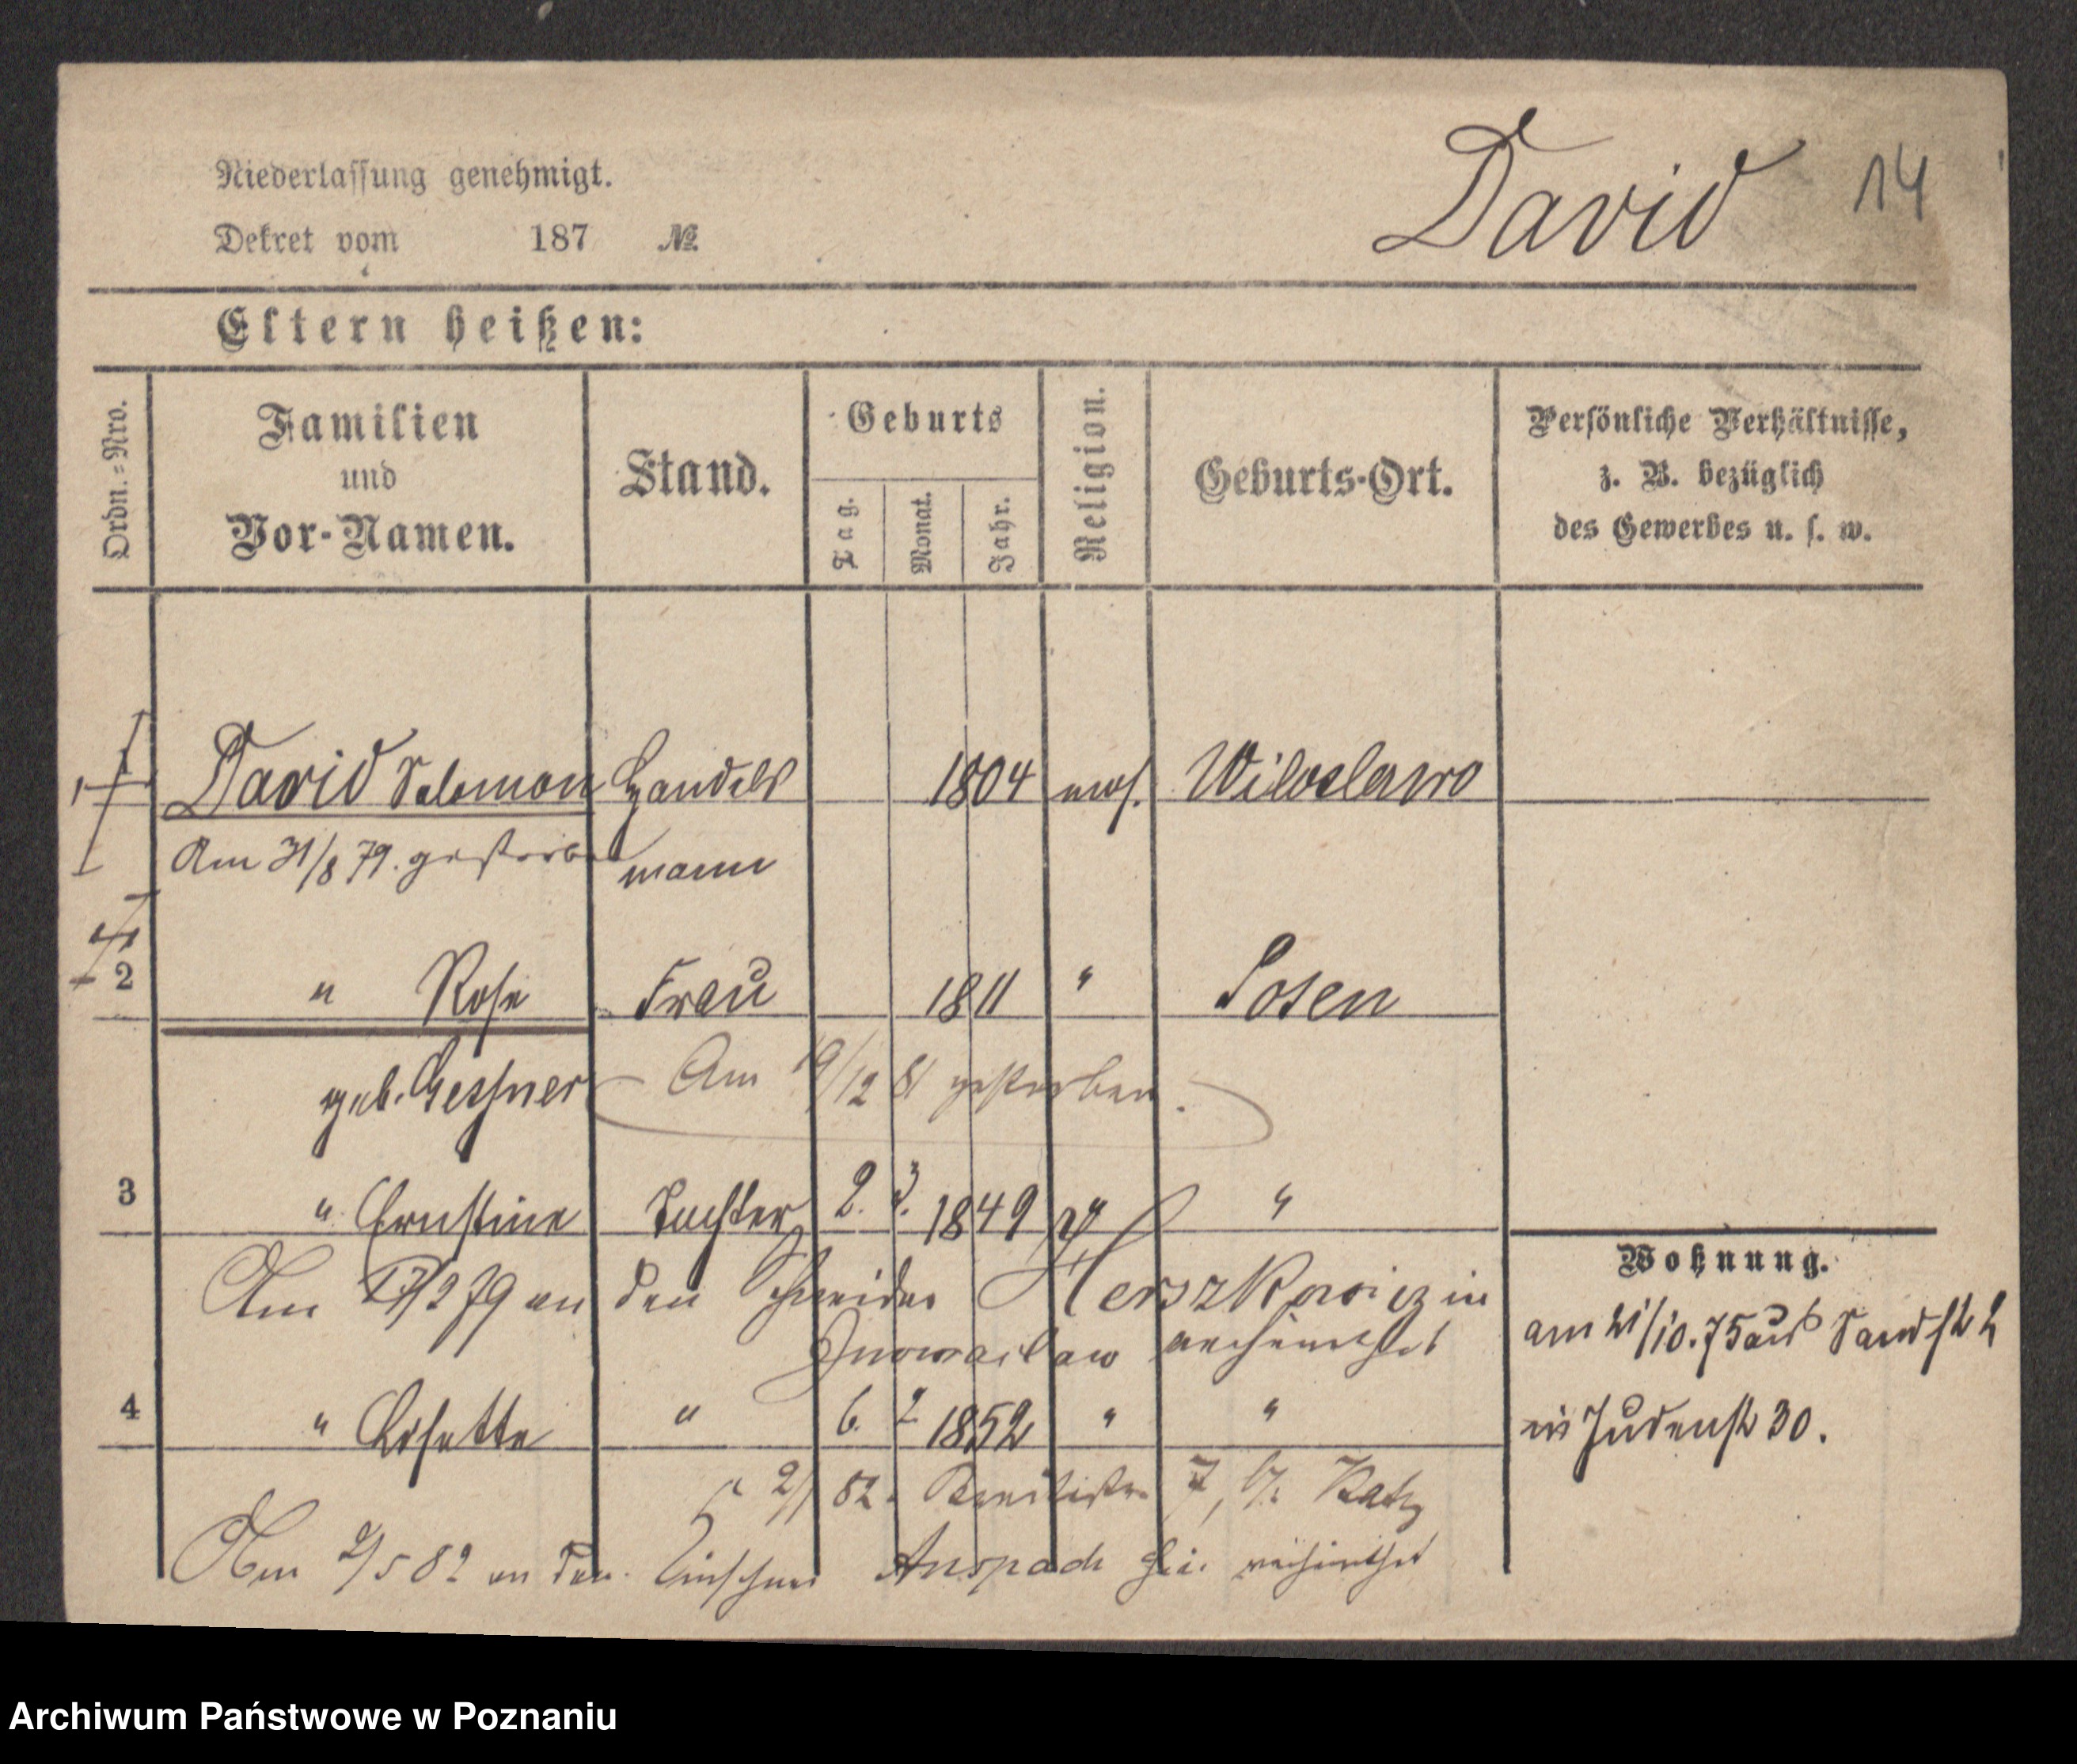 David 14
Niederlassung genehmigt.
Dekret vom 187 №
Eltern heißen:
Ordn.=Nro. Familien und Vor-Namen. Stand. Geburts Tag. Monat. Jahr. Religion. Geburts-Ort. Persönliche Verhältnisse, z. B. bezüglich des Gewerbes u. s. w.
1 David Salomon Handels 1804 mos. Miloslawo
Am 31/8 79. gestorben mann
2 " Rose Frau 1811 " Posen
geb. Gessner Am 19/12 81 gestorben.
3 " Ernstine Tochter 2. 3. 1849 "
Am 17/2 79 an den Schneider Herszkowicz in
Inowraclaw verheirathet
Wohnung.
am 21/10.75 aus Sandstr 2
in Judenstr 30.
4 " Lisette " 6. 2 1852 " "
2/1 82. Breitestr. 7, b/. Katz
Am 2/5 82 an den Anspach hie. verheirathet
Archiwum Państwowe w Poznaniu